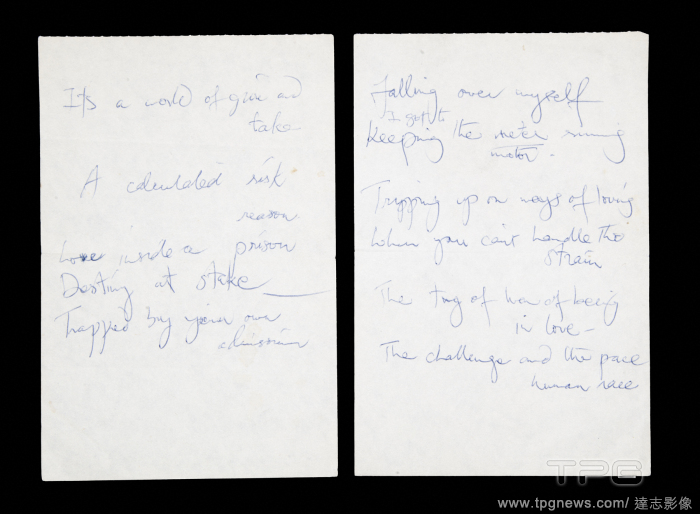 It's a world of give and
take
A calculated risk
reason
Love inside a prison
Destiny at stake
Trapped by your own
admission
Falling over myself
I got to
Keeping the meter running
motor.
Tripping up on ways of loving
When you can't handle the
strain
The tug of war of being
in love -
The challenge and the pace
human race
TPG
www.tpgnews.com/ 達志影像